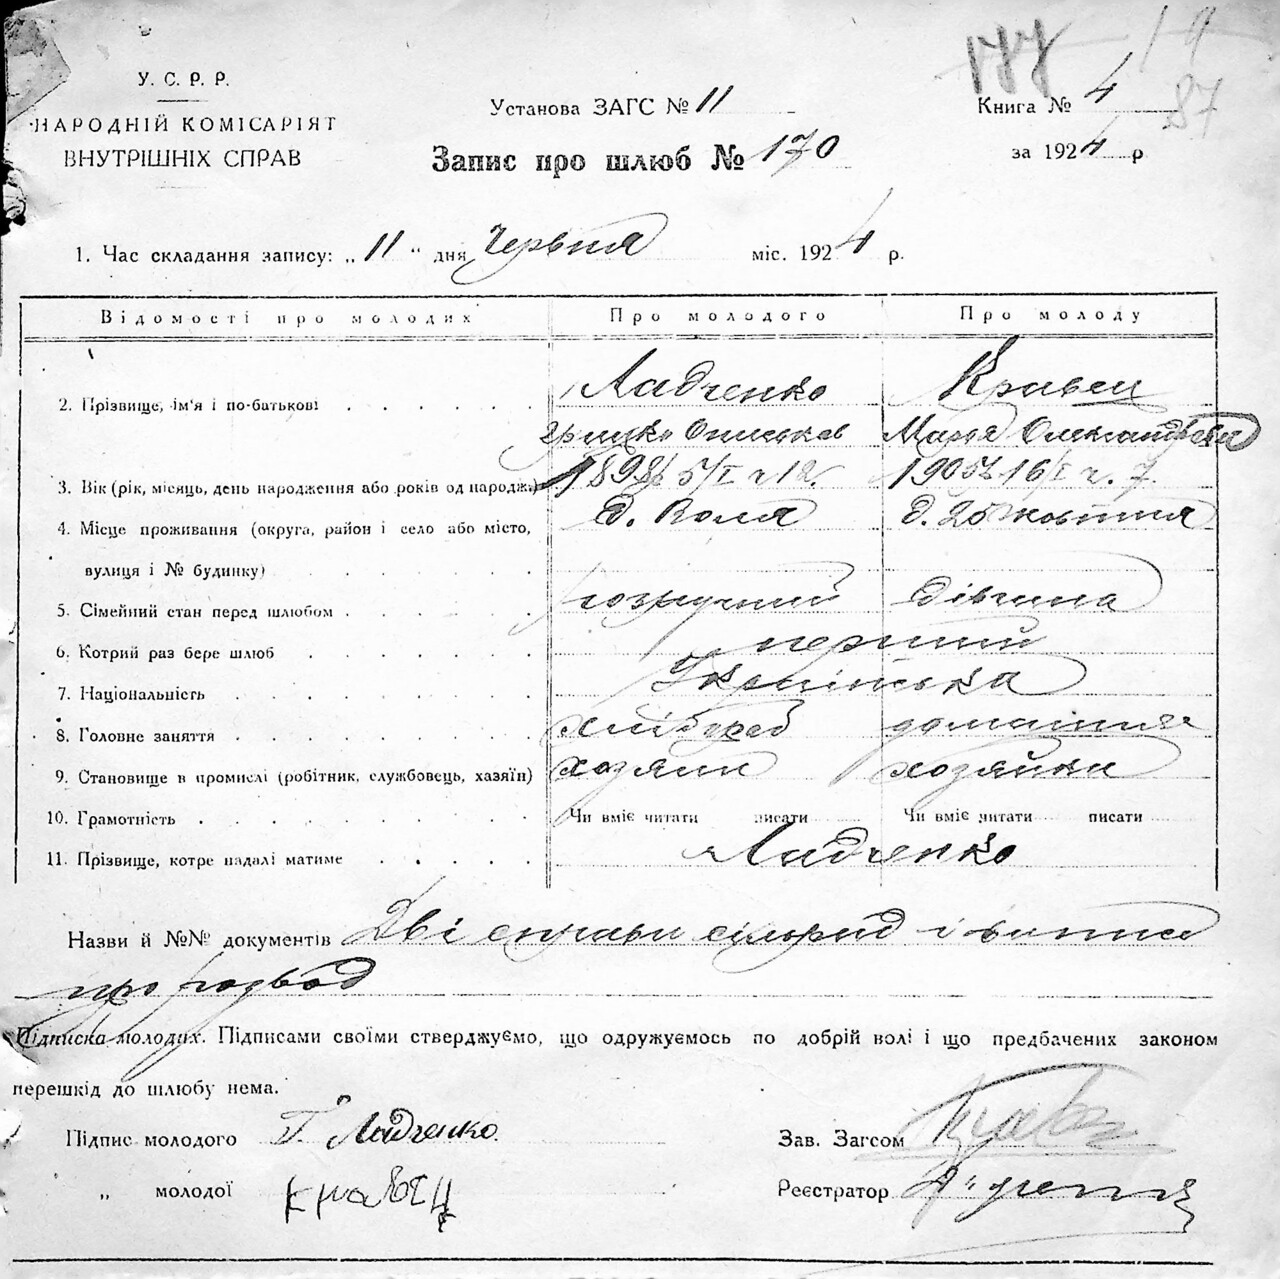 177 19
87
У. С. Р. Р.
НАРОДНІЙ КОМІСАРІЯТ
ВНУТРІШНІХ СПРАВ
Установа ЗАГС № 11
Книга № 4
Запис про шлюб № 170
за 1924 р
1. Час складання запису: „ 11 " дня Червня міс. 1924 р.
Відомості про молодих Про молодого Про молоду
2. Прізвище, ім'я і по-батькові Ладченко Кравец
Грицко Мария Олександровна
3. Вік (рік, місяць, день народження або років од народж.) 1898 5/I 1905 16/I
4. Місце проживання (округа, район і село або місто, с. Воля с. 25 жовтня
вулиця і № будинку)
5. Сімейний стан перед шлюбом розлучний дівчина
6. Котрий раз бере шлюб первий
7. Національність Українська
8. Головне заняття хлібороб домашня
9. Становище в промислі (робітник, службовець, хазяїн) хозяин хозяйка
10. Грамотність Чи вміє читати писати Чи вміє читати писати
11. Прізвище, котре надалі матиме Ладченко
Назви й №№ документів Дві справки сільрад і випис
про розвод
Підписка молодих. Підписами своїми стверджуємо, що одружуємось по добрій волі і що предбачених законом
перешкід до шлюбу нема.
Підпис молодого Г. Ладченко
Зав. Загсом
„ молодої Кравец
Реєстратор